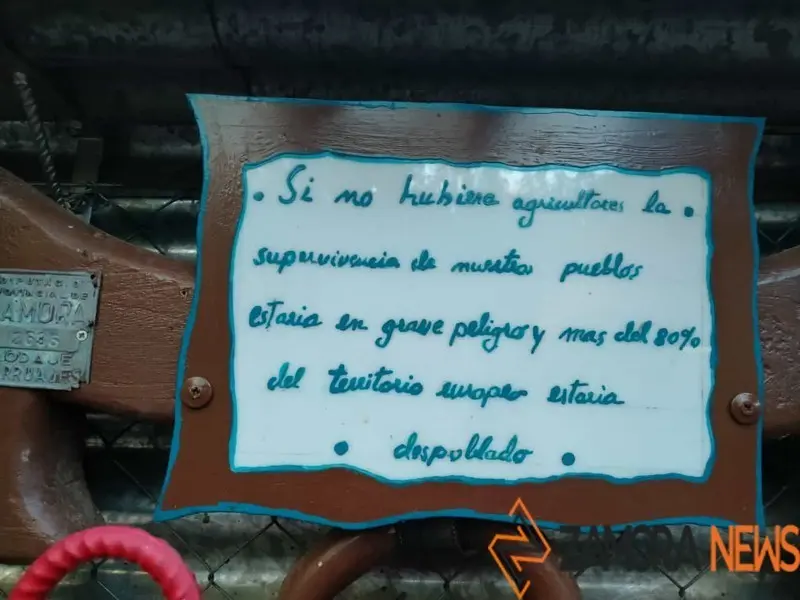 • Si no hubiera agricultores la •
supervivencia de nuestros pueblos
estaria en grave peligro y mas del 80%
del territorio europeo estaria
• despoblado •
ZAMORA
2686
RODAJE
ZAMORA NEWS